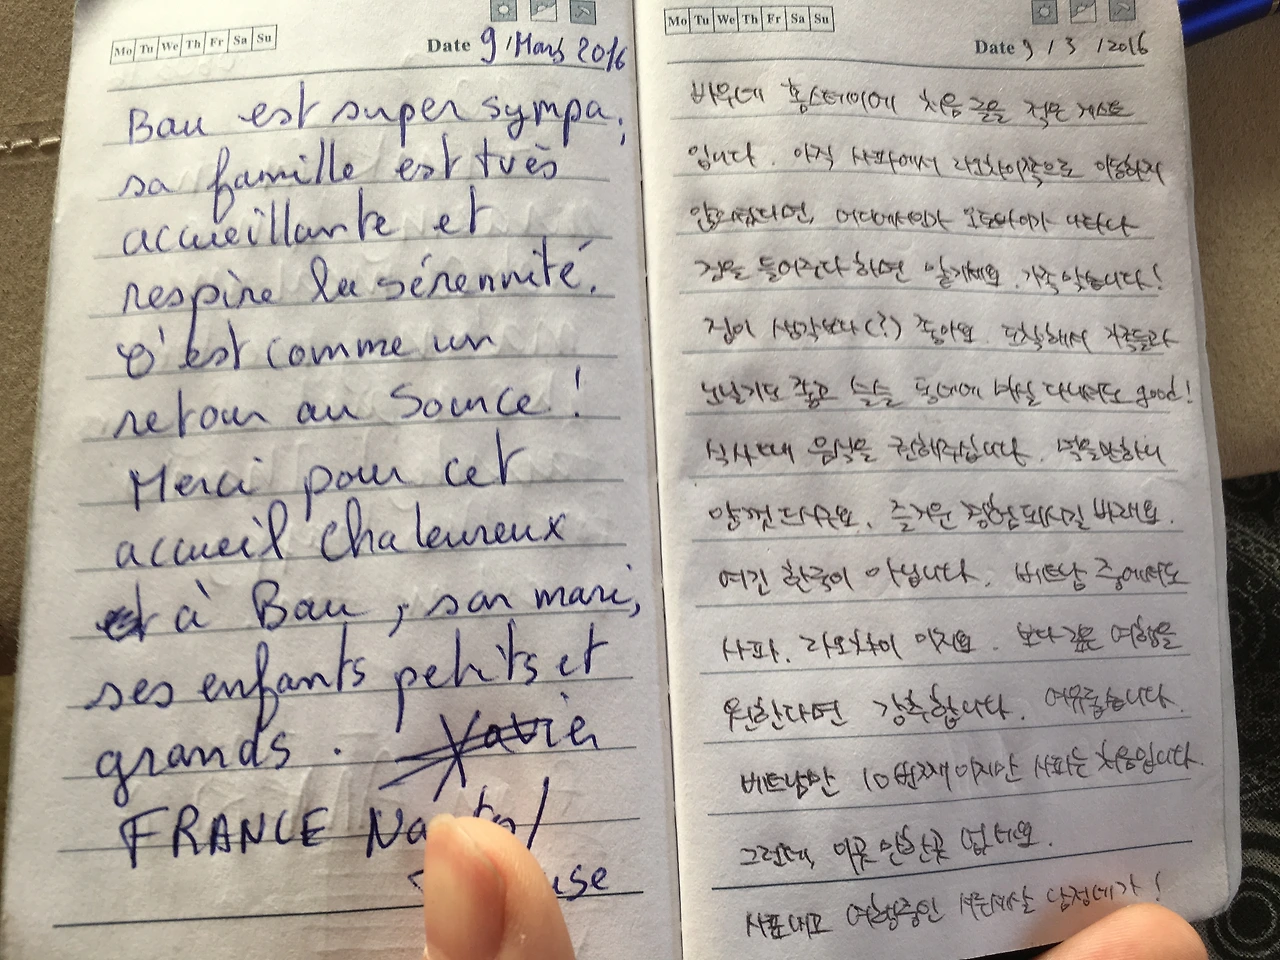 Mo Tu We Th Fr Sa Su
Date 9 / Mars 2016
Bau est super sympa,
sa famille est très
accueillante et
respire la sérennité.
C'est comme un
retour au Source !
Merci pour cet
accueil chaleureux
et à Bau, son mari,
ses enfants petits et
grands.
FRANCE
Mo Tu We Th Fr Sa Su
Date 9 / 3 / 2016
바우네 홈스테이에 처음 글을 적은 게스트
입니다. 아직 사파에서 라오차이쪽으로 이동하지
않으셨다면, 어디에선가 오토바이가 나타나
짐을 들어준다 하면 맡기세요. 가족 맞습니다!
집이 생각보다(?) 좋아요. 도착해서 가족들과
노닐기도 좋고 슬슬 동네에 마실 다녀도 good!
식사때 음식을 권해주십니다. 먹을만하니
않껀 드시구요. 즐거운 경험 되시길 바래요.
여긴 한국이 아닙니다. 베트남 중에서도
사파. 라오차이 이지요. 보다 깊은 여행을
원한다면 강추합니다. 여유롭습니다.
베트남만 10번째이지만 사파는 처음입니다.
그런데, 이곳 만한 곳 없네요.
사표내고 여행중인 서른세살 남정네가!